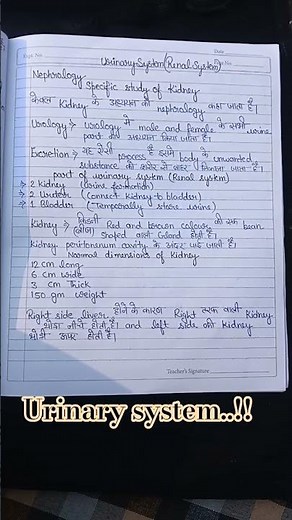 Date
Urinary System (Renal System)
Nephrology
Specific study of Kidney
केवल Kidney के अध्ययन को nephrology कहा जाता है।
Urology → urology में male and female के सभी urine
part का अध्ययन किया जाता है।
Excretion → यह ऐसी process है इसमें body के unwanted
substance को शरीर से बाहर निकाला जाता है।
part of urinary system (Renal system)
→ 2 kidney (Urine formation)
→ 2 Ureter (Connect kidney to bladder)
→ 1 Bladder (Temporally store urine)
Kidney → किडनी Red and brown colour की एक bean
Shaped वाली Gland होती है।
kidney peritoneum cavity के अंदर पाई जाती है।
Normal dimensions of Kidney
12 cm long
6 cm wide
3 cm Thick
150 gm weight
Right side liver होने के कारण Right तरफ वाली Kidney
थोड़ा नीचे होती है। and left side की kidney
थोड़ी ऊपर होती है।
Teacher's Signature
Urinary system..!!